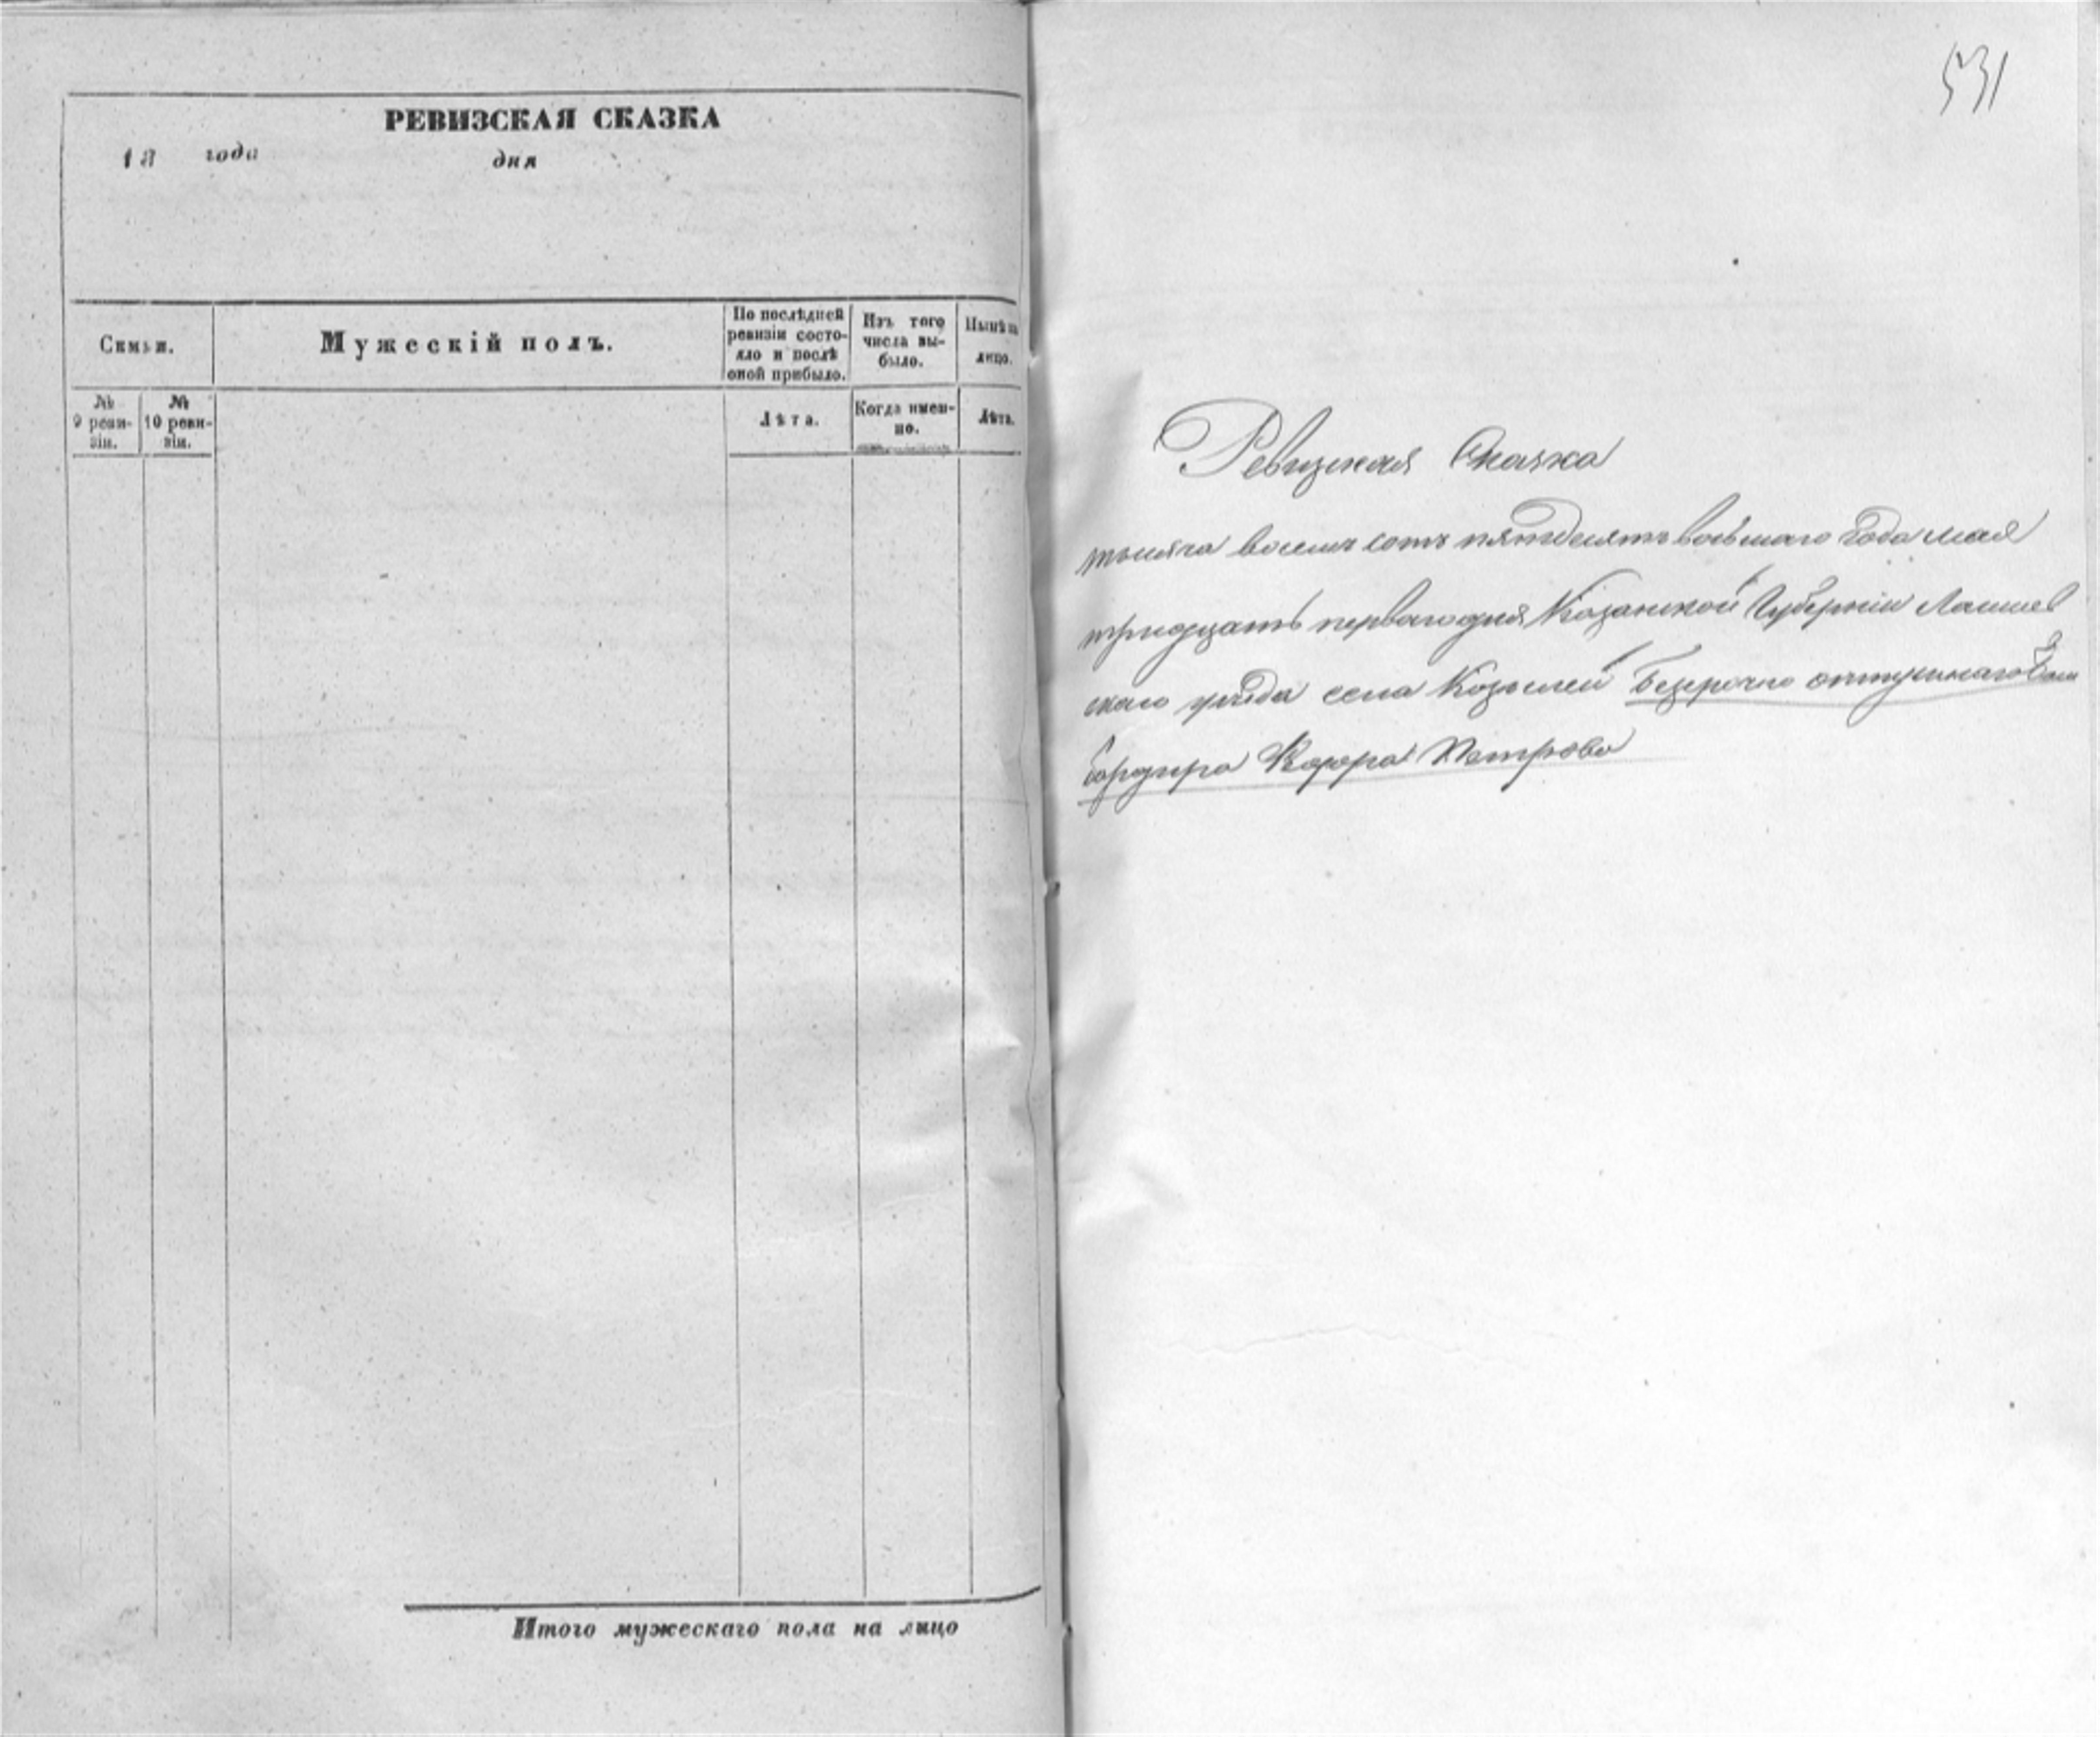 РЕВИЗСКАЯ СКАЗКА
18 года дня
Семьи.
Мужескій полъ.
По послѣдней
ревизіи состо-
яло и послѣ
оной прибыло.
Изъ того
числа вы-
было.
Нынѣ на
лицо.
№
9 реви-
зіи.
№
10 реви-
зіи.
Лѣта.
Когда имен-
но.
Лѣта.
Итого мужескаго пола на лицо
531
Ревизская Сказка
тысяча восемь сотъ пятдесятъ восьмаго года мая
тридцать перваго дня Казанской Губерніи Лаишев
скаго уѣзда села Козылей Безсрочно отпускнаго Бом
бордира Петрова